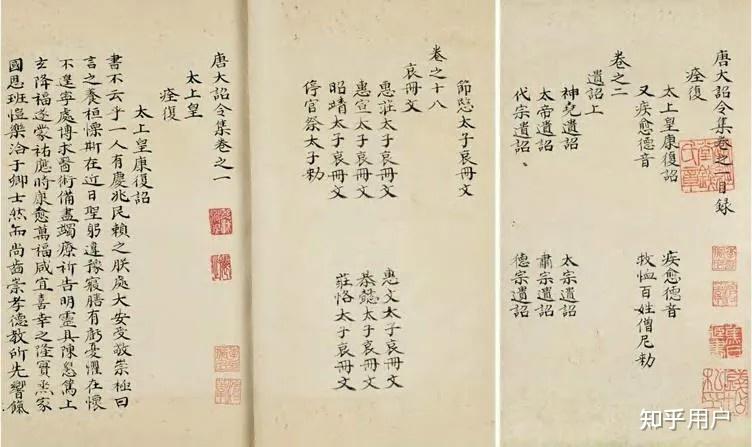 唐大詔令集卷之一目録
痊復
太上皇康復詔 疾愈德音
又疾愈德音 救恤百姓僧尼勅
卷之二
遺詔上
神堯遺詔 太宗遺詔
太帝遺詔 肅宗遺詔
代宗遺詔 德宗遺詔
節愍太子哀冊文
卷之十八
哀冊文
惠莊太子哀冊文 惠文太子哀冊文
惠宣太子哀冊文 恭懿太子哀冊文
昭靖太子哀冊文 莊恪太子哀冊文
停官祭太子勅
唐大詔令集卷之一
太上皇
痊復
太上皇康復詔
書不云乎一人有慶兆民賴之朕處大安受敬崇極曰
言之養桓慄斯在近日聖躬違豫寢膳有虧憂懼在懷
不遑寧處博求醫術備盡蠲療祈告明靈具陳懇篤上
玄降福遂蒙祐應時康愈萬福咸宜喜幸之隆實兼家
國思班愷樂洽于卿士然而尚齒崇孝德教所先響餼
知乎用户